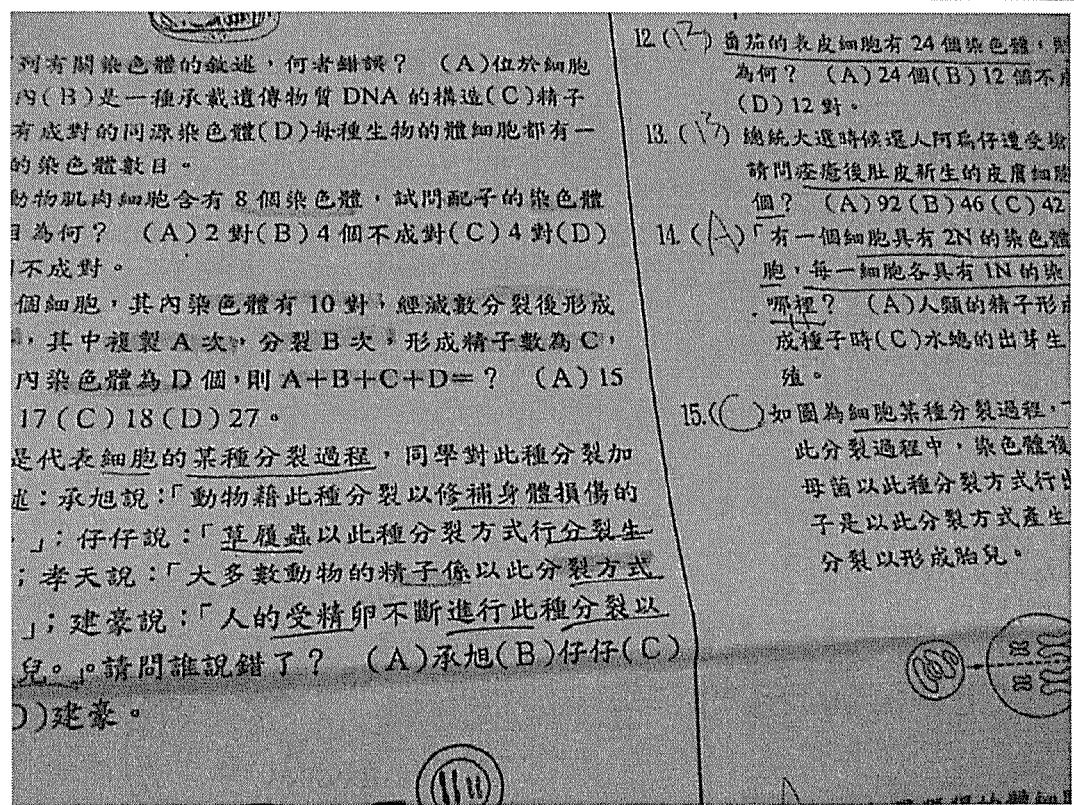 列有關染色體的敘述，何者錯誤？ (A)位於細胞
內(B)是一種承載遺傳物質 DNA 的構造(C)精子
有成對的同源染色體(D)每種生物的體細胞都有一
的染色體數目。
動物肌肉細胞含有 8 個染色體，試問配子的染色體
目為何？ (A)2 對(B)4 個不成對(C)4 對(D)
不成對。
個細胞，其內染色體有 10 對，經減數分裂後形成
，其中複製 A 次，分裂 B 次，形成精子數為 C，
內染色體為 D 個，則 A+B+C+D=？ (A)15
17(C)18(D)27。
是代表細胞的某種分裂過程，同學對此種分裂加
述：承旭說：「動物藉此種分裂以修補身體損傷的
」；仔仔說：「草履蟲以此種分裂方式行分裂生
；孝天說：「大多數動物的精子係以此分裂方式
」；建豪說：「人的受精卵不斷進行此種分裂以
兒。」。請問誰說錯了？ (A)承旭(B)仔仔(C)
D)建豪。
12.(B) 番茄的表皮細胞有 24 個染色體，
為何？ (A)24 個(B)12 個不
(D)12 對。
13.(B) 總統大選時候選人阿扁仔遭受槍
請問痊癒後肚皮新生的皮膚細胞
個？ (A)92(B)46(C)42
14.(A)「有一個細胞具有 2N 的染色體
胞，每一細胞各具有 1N 的染
哪裡？ (A)人類的精子形成
成種子時(C)水螅的出芽生
殖。
15.(C)如圖為細胞某種分裂過程，
此分裂過程中，染色體複
母菌以此種分裂方式行出
子是以此分裂方式產生
分裂以形成胎兒。